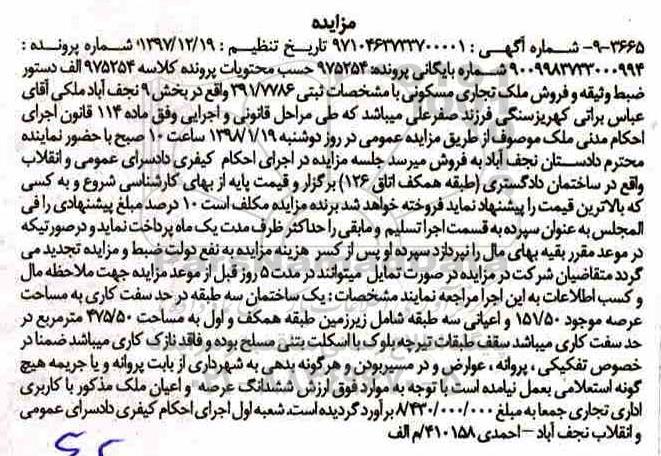 مزایده
۳۶۶۵-۹- شماره آگهی : ۹۷۱۰۴۶۳۷۳۳۷۰۰۰۰۱ تاریخ تنظیم : ۱۳۹۷/۱۲/۱۹ شماره پرونده :
۹۰۰۹۹۸۳۷۳۳۰۰۰۹۹۴ شماره بایگانی پرونده: ۹۷۵۲۵۴ حسب محتویات پرونده کلاسه ۹۷۵۲۵۴ الف دستور
ضبط وثیقه و فروش ملک تجاری مسکونی با مشخصات ثبتی ۳۹۱/۷۷۸۶ واقع در بخش ۹ نجف آباد ملکی آقای
عباس براتی کهریزسنگی فرزند صفرعلی میباشد که طی مراحل قانونی و اجرایی وفق ماده ۱۱۴ قانون اجرای
احکام مدنی ملک موصوف از طریق مزایده عمومی در روز دوشنبه ۱۳۹۸/۱/۱۹ ساعت ۱۰ صبح با حضور نماینده
محترم دادستان نجف آباد به فروش میرسد جلسه مزایده در اجرای احکام کیفری دادسرای عمومی و انقلاب
واقع در ساختمان دادگستری (طبقه همکف اتاق ۱۲۶) برگزار و قیمت پایه از بهای کارشناسی شروع و به کسی
که بالاترین قیمت را پیشنهاد نماید فروخته خواهد شد برنده مزایده مکلف است ۱۰ درصد مبلغ پیشنهادی را فی
المجلس به عنوان سپرده به قسمت اجرا تسلیم و مابقی را حداکثر ظرف مدت یک ماه پرداخت نماید و درصورتیکه
در موعد مقرر بقیه بهای مال را نپردازد سپرده او پس از کسر هزینه مزایده به نفع دولت ضبط و مزایده تجدید می
گردد متقاضیان شرکت در مزایده در صورت تمایل میتوانند در مدت ۵ روز قبل از موعد مزایده جهت ملاحظه مال
و کسب اطلاعات به این اجرا مراجعه نمایند مشخصات : یک ساختمان سه طبقه در حد سفت کاری به مساحت
عرصه موجود ۱۵۱/۵۰ و اعیانی سه طبقه شامل زیرزمین طبقه همکف و اول به مساحت ۴۷۵/۵۰ مترمربع در
حد سفت کاری میباشد سقف طبقات تیرچه بلوک با اسکلت بتنی مسلح بوده و فاقد نازک کاری میباشد ضمنا در
خصوص تفکیکی ، پروانه ، عوارض و در مسیربودن و هرگونه بدهی به شهرداری از بابت پروانه و یا جریمه هیچ
گونه استعلامی بعمل نیامده است با توجه به موارد فوق ارزش ششدانگ عرصه و اعیان ملک مذکور با کاربری
اداری تجاری جمعا به مبلغ ۸/۴۳۰/۰۰۰/۰۰۰ برآورد گردیده است. شعبه اول اجرای احکام کیفری دادسرای عمومی
و انقلاب نجف آباد - احمدی ۴۱۰۱۵۸/م الف